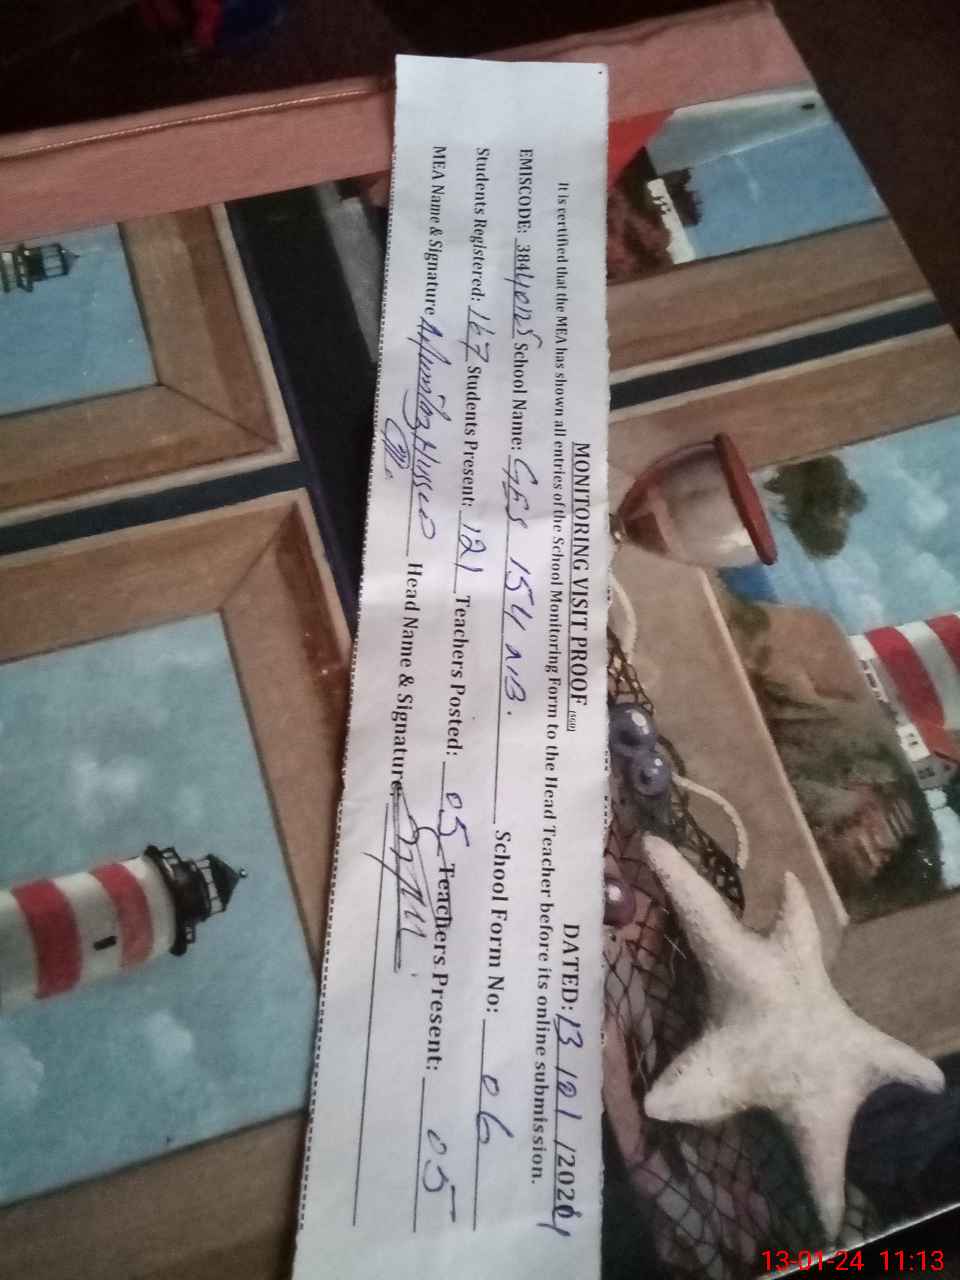 MONITORING VISIT PROOF (SGD) DATED: 13/01/2024
It is certified that the MEA has shown all entries of the School Monitoring Form to the Head Teacher before its online submission.
EMISCODE: 38440125 School Name: GES 154 N.B. School Form No: 06
Students Registered: 167 Students Present: 121 Teachers Posted: 05 Teachers Present: 05
MEA Name & Signature Head Name & Signature:
13-01-24 11:13